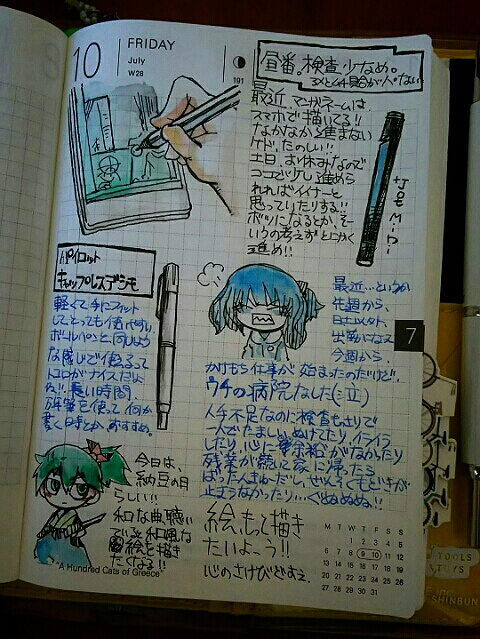 10
FRIDAY
July
W28
191
昼番。検査少なめ。
最近、マンガネームは、
スマホで描いてる!!
なかなか進まない
ケド、たのしい!!
土日、お休みなので
ココで少し進めら
れればイイナーと
思っていたりする!!
ボツになるとか、そー
いうの考えずとにかく
進め!!
パイロット
キャップレスデシモ
軽くて手にフィット
してとっても使いやすい。
ボールペンと同じよう
な感じで使えるって
トコロがナイスだよ
ね!!長い時間、
万年筆を使って何か
書く時とか、おすすめ。
最近…というか
先週から、
日土以外、
出勤になって
今週から、
かけもち仕事が始まったのだけど、
ウチの病院なした(泣)
人手不足なのに検査もさりで
一人でたましいぬけてたり、イライラ
したり、心に余裕がなかったり
残業が続いて家に帰ったら
ばったんきゅーだし、ぜんそくもどきが
止まらなかったり…ぐぬぬぬ!!
今日は、
納豆の日
らしい!!
和な曲、聴い
ている。和風な
絵を描き
たくなる!!
絵、もって描き
たいよーう!!
心のさけびどすえ。
"A Hundred Cats of Greece"
7
M T W T F S S
1 2 3 4 5
6 7 8 9 10 11 12
13 14 15 16 17 18 19
20 21 22 23 24 25 26
27 28 29 30 31
TOOLS
SHINBUN